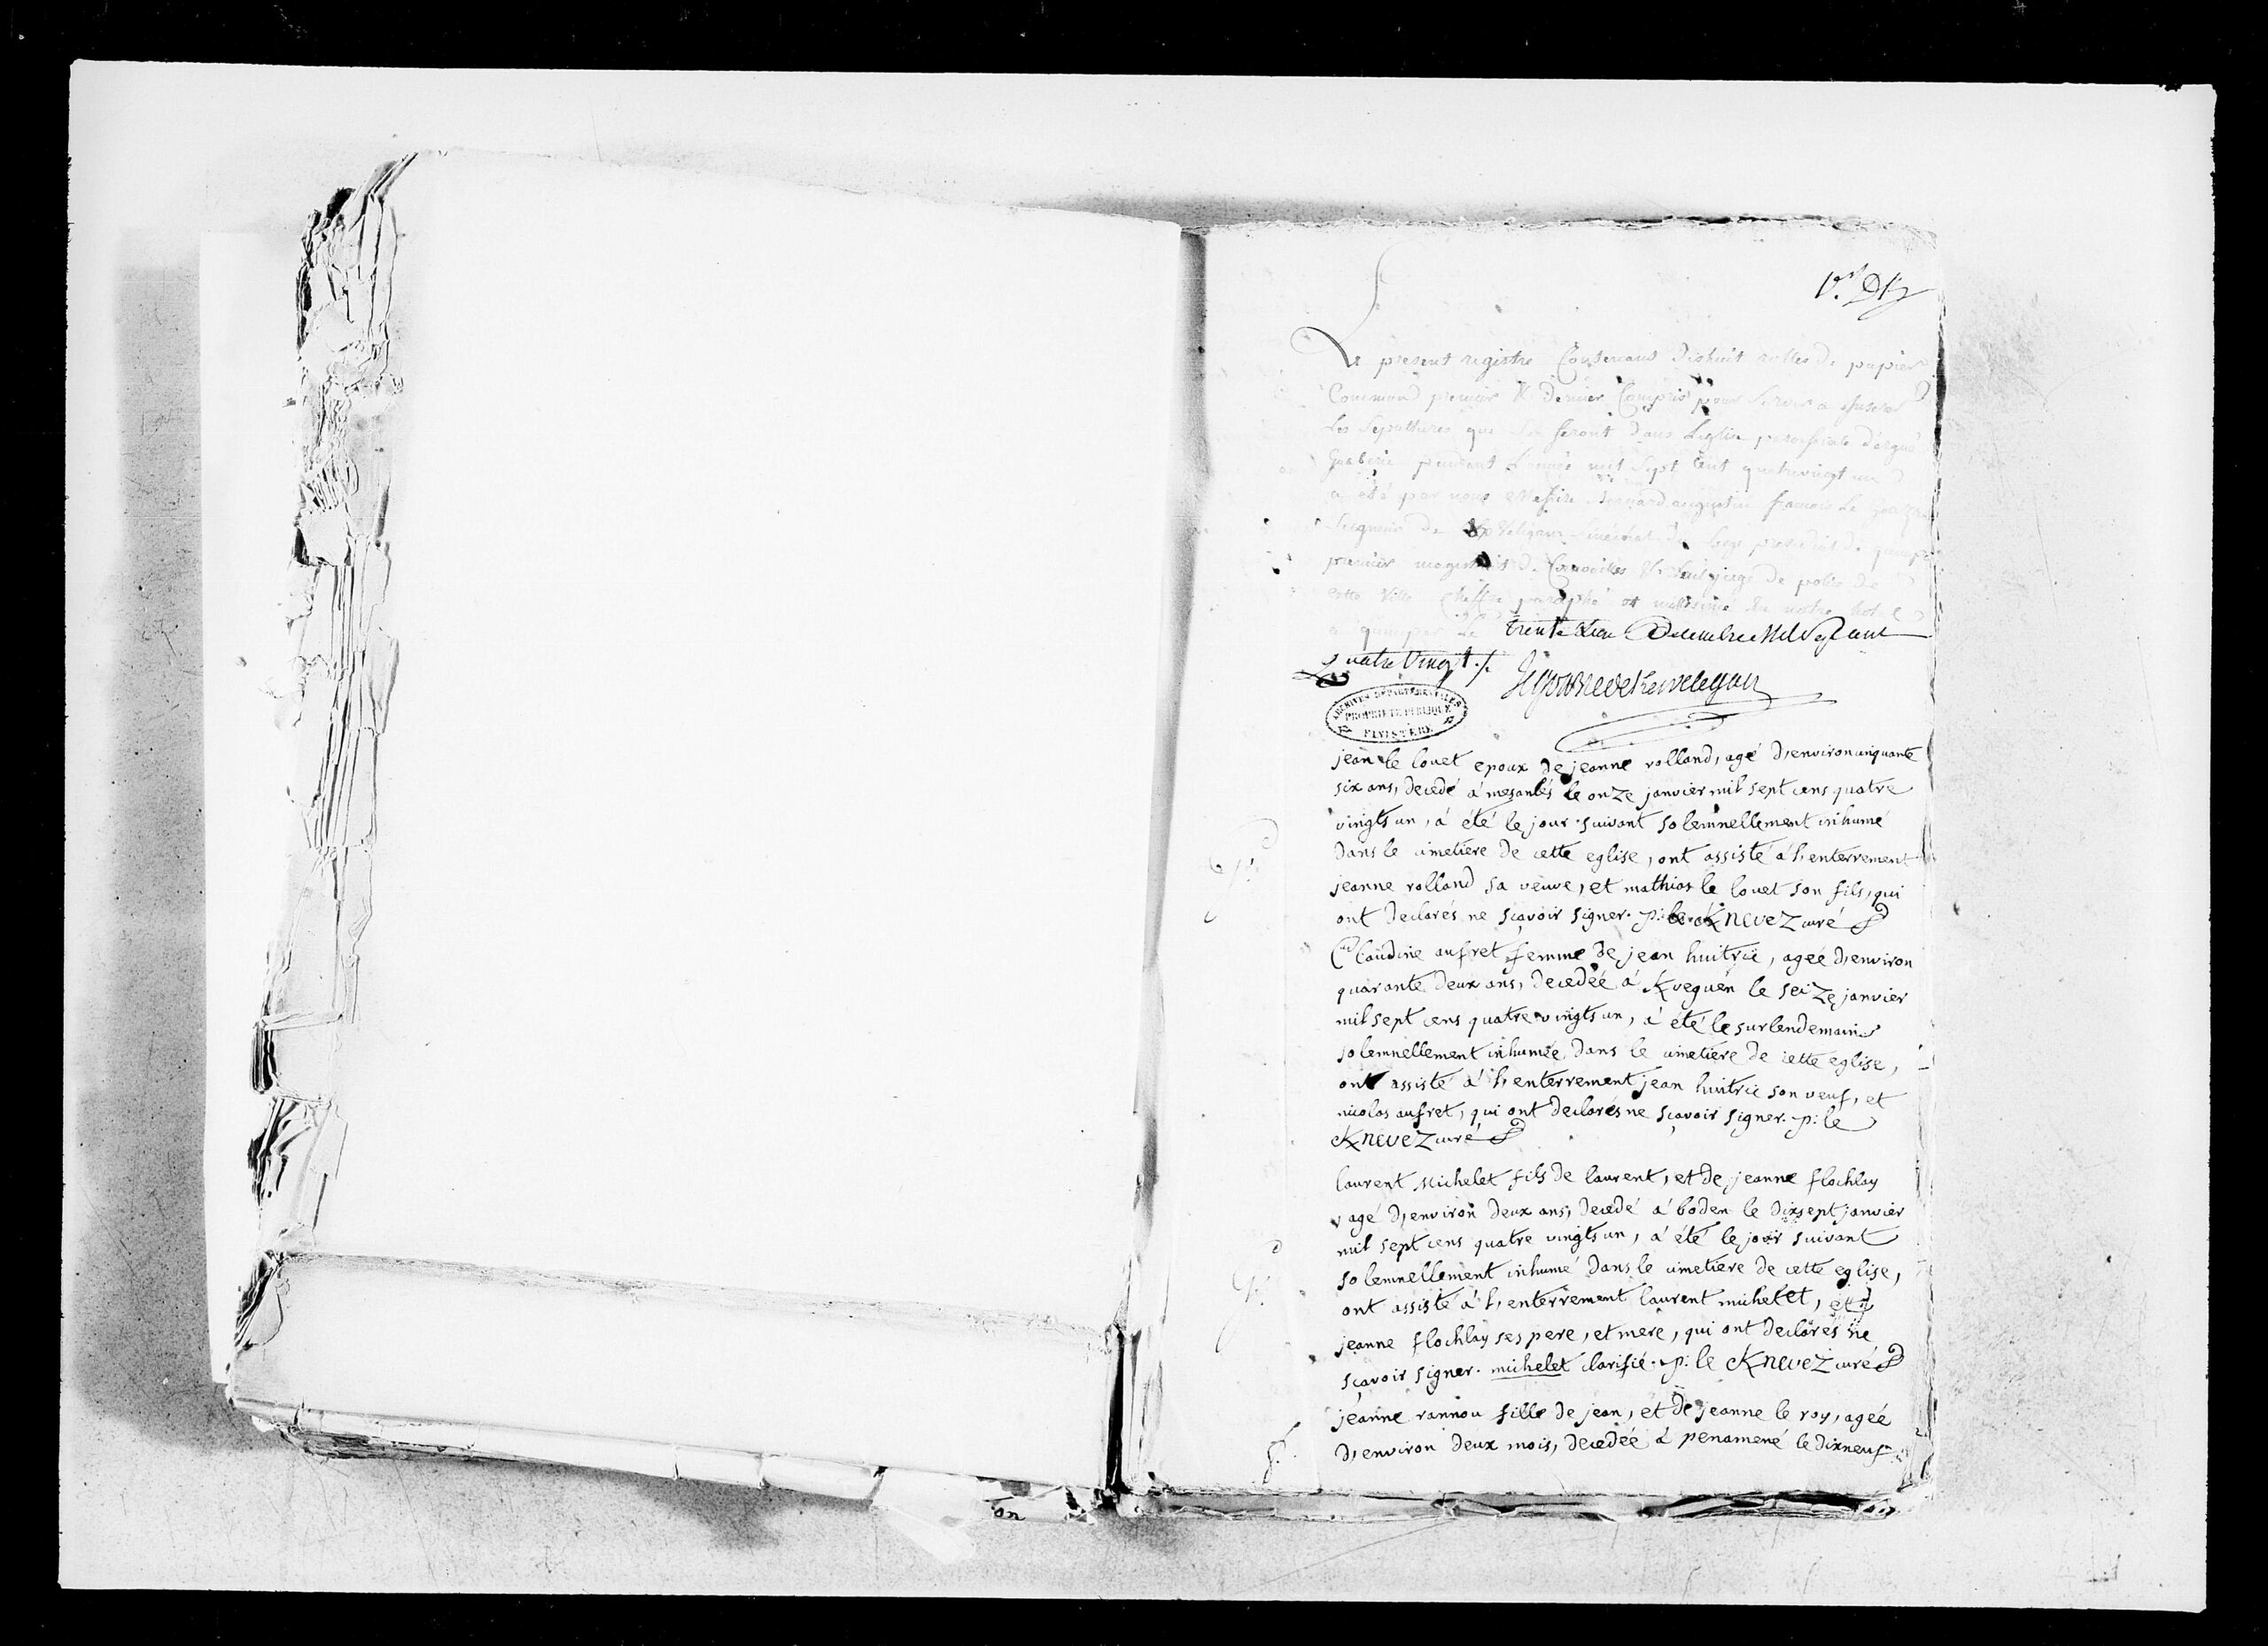 Le present registre Contenant dixhuit rolles de papier
Commun premier & dernier Compris pour servir a inserer
Les Sepultures qui se feront dans Leglise paroissiale d'ergué
Gaberic pendant L'année mil Sept Cent quatrevingt un
a été par nous Messire augustin francois Le
Seigneur de
premier magistrat de Cornouailles & seul juge de police de
cette Ville Chiffré paraphé et millesimé En notre hotel
a quimper Le trente Decembre Mil Sept cent
quatre Vingt ./.
Le goazre de Kervelegan
ARCHIVES DÉPARTEMENTALES
PROPRIÉTÉ PUBLIQUE
FINISTÈRE
jean le louet epoux de jeanne rolland, agé d'environ cinquante
six ans, decedé á mesanlés le onze janvier mil sept cens quatre
vingts un, á été le jour suivant solemnellement inhumé
dans le cimetiere de cette eglise, ont assisté á l'enterrement
jeanne rolland sa veuve, et mathias le louet son fils, qui
ont declarés ne sçavoir signer. p: le Knevez curé
Claudine aufret femme de jean huitric, agée d'environ
quarante deux ans, decedée á Kveguen le seize janvier
mil sept cens quatre vingts un, á été le surlendemain
solemnellement inhumée dans le cimetiere de cette eglise,
ont assisté á l'enterrement jean huitric son veuf, et
nicolas aufret, qui ont declarés ne sçavoir signer. p: le
Knevez curé
laurent Michelet fils de laurent, et de jeanne flochlay
agé d'environ deux ans, decedé á boden le dixsept janvier
mil sept cens quatre vingts un, á été le jour suivant
solemnellement inhumé dans le cimetiere de cette eglise,
ont assisté á l'enterrement laurent michelet, et
jeanne flochlay ses pere, et mere, qui ont declarés ne
sçavoir signer. michelet clarifié. p: le Knevez curé
jeanne rannou fille de jean, et de jeanne le roy, agée
d'environ deux mois, decedée á penamené le dixneuf